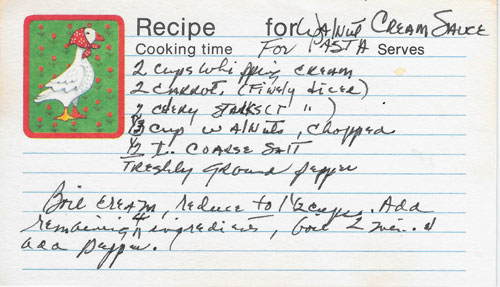 Recipe for Walnut Cream Sauce
Cooking time For Pasta Serves
2 cups whipping cream
2 carrots, (finely diced)
2 celery stalks ( " " )
1/3 cup walnuts, chopped
1/2 t. coarse salt
Freshly ground pepper
Boil cream, reduce to 1 1/2 cups. Add
remaining 4 ingredients, boil 2 min. &
add pepper.